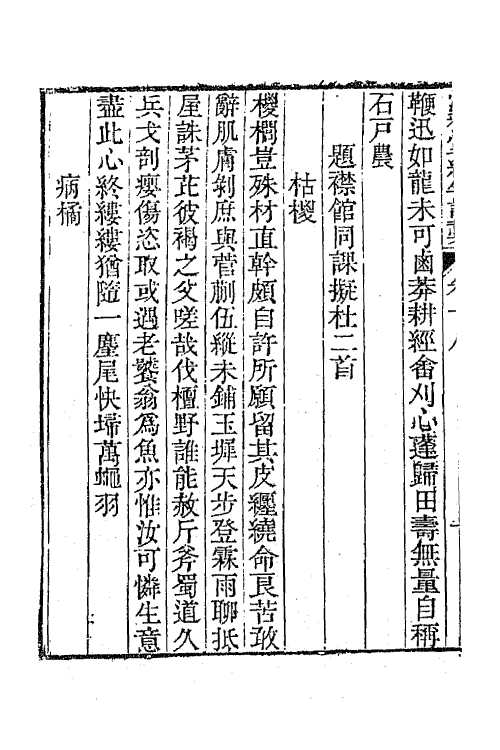 鞭迅如龍未可鹵莽耕經畬刈心蓬歸田壽無量自稱
石戸農
題襟館同課擬杜二首
枯椶
椶櫚豈殊材直幹頗自許所願留其皮纏繞命良苦敢
辭肌膚剝庶與菅蒯伍縱未鋪玉墀天步登霖雨聊抵
屋誅茅茈彼褐之父嗟哉伐檀野誰能赦斤斧蜀道久
兵戈剖癭傷恣取或遇老饕翁爲魚亦惟汝可憐生意
盡此心終縷縷猶隨一麈尾快埽萬蠅羽
病橘